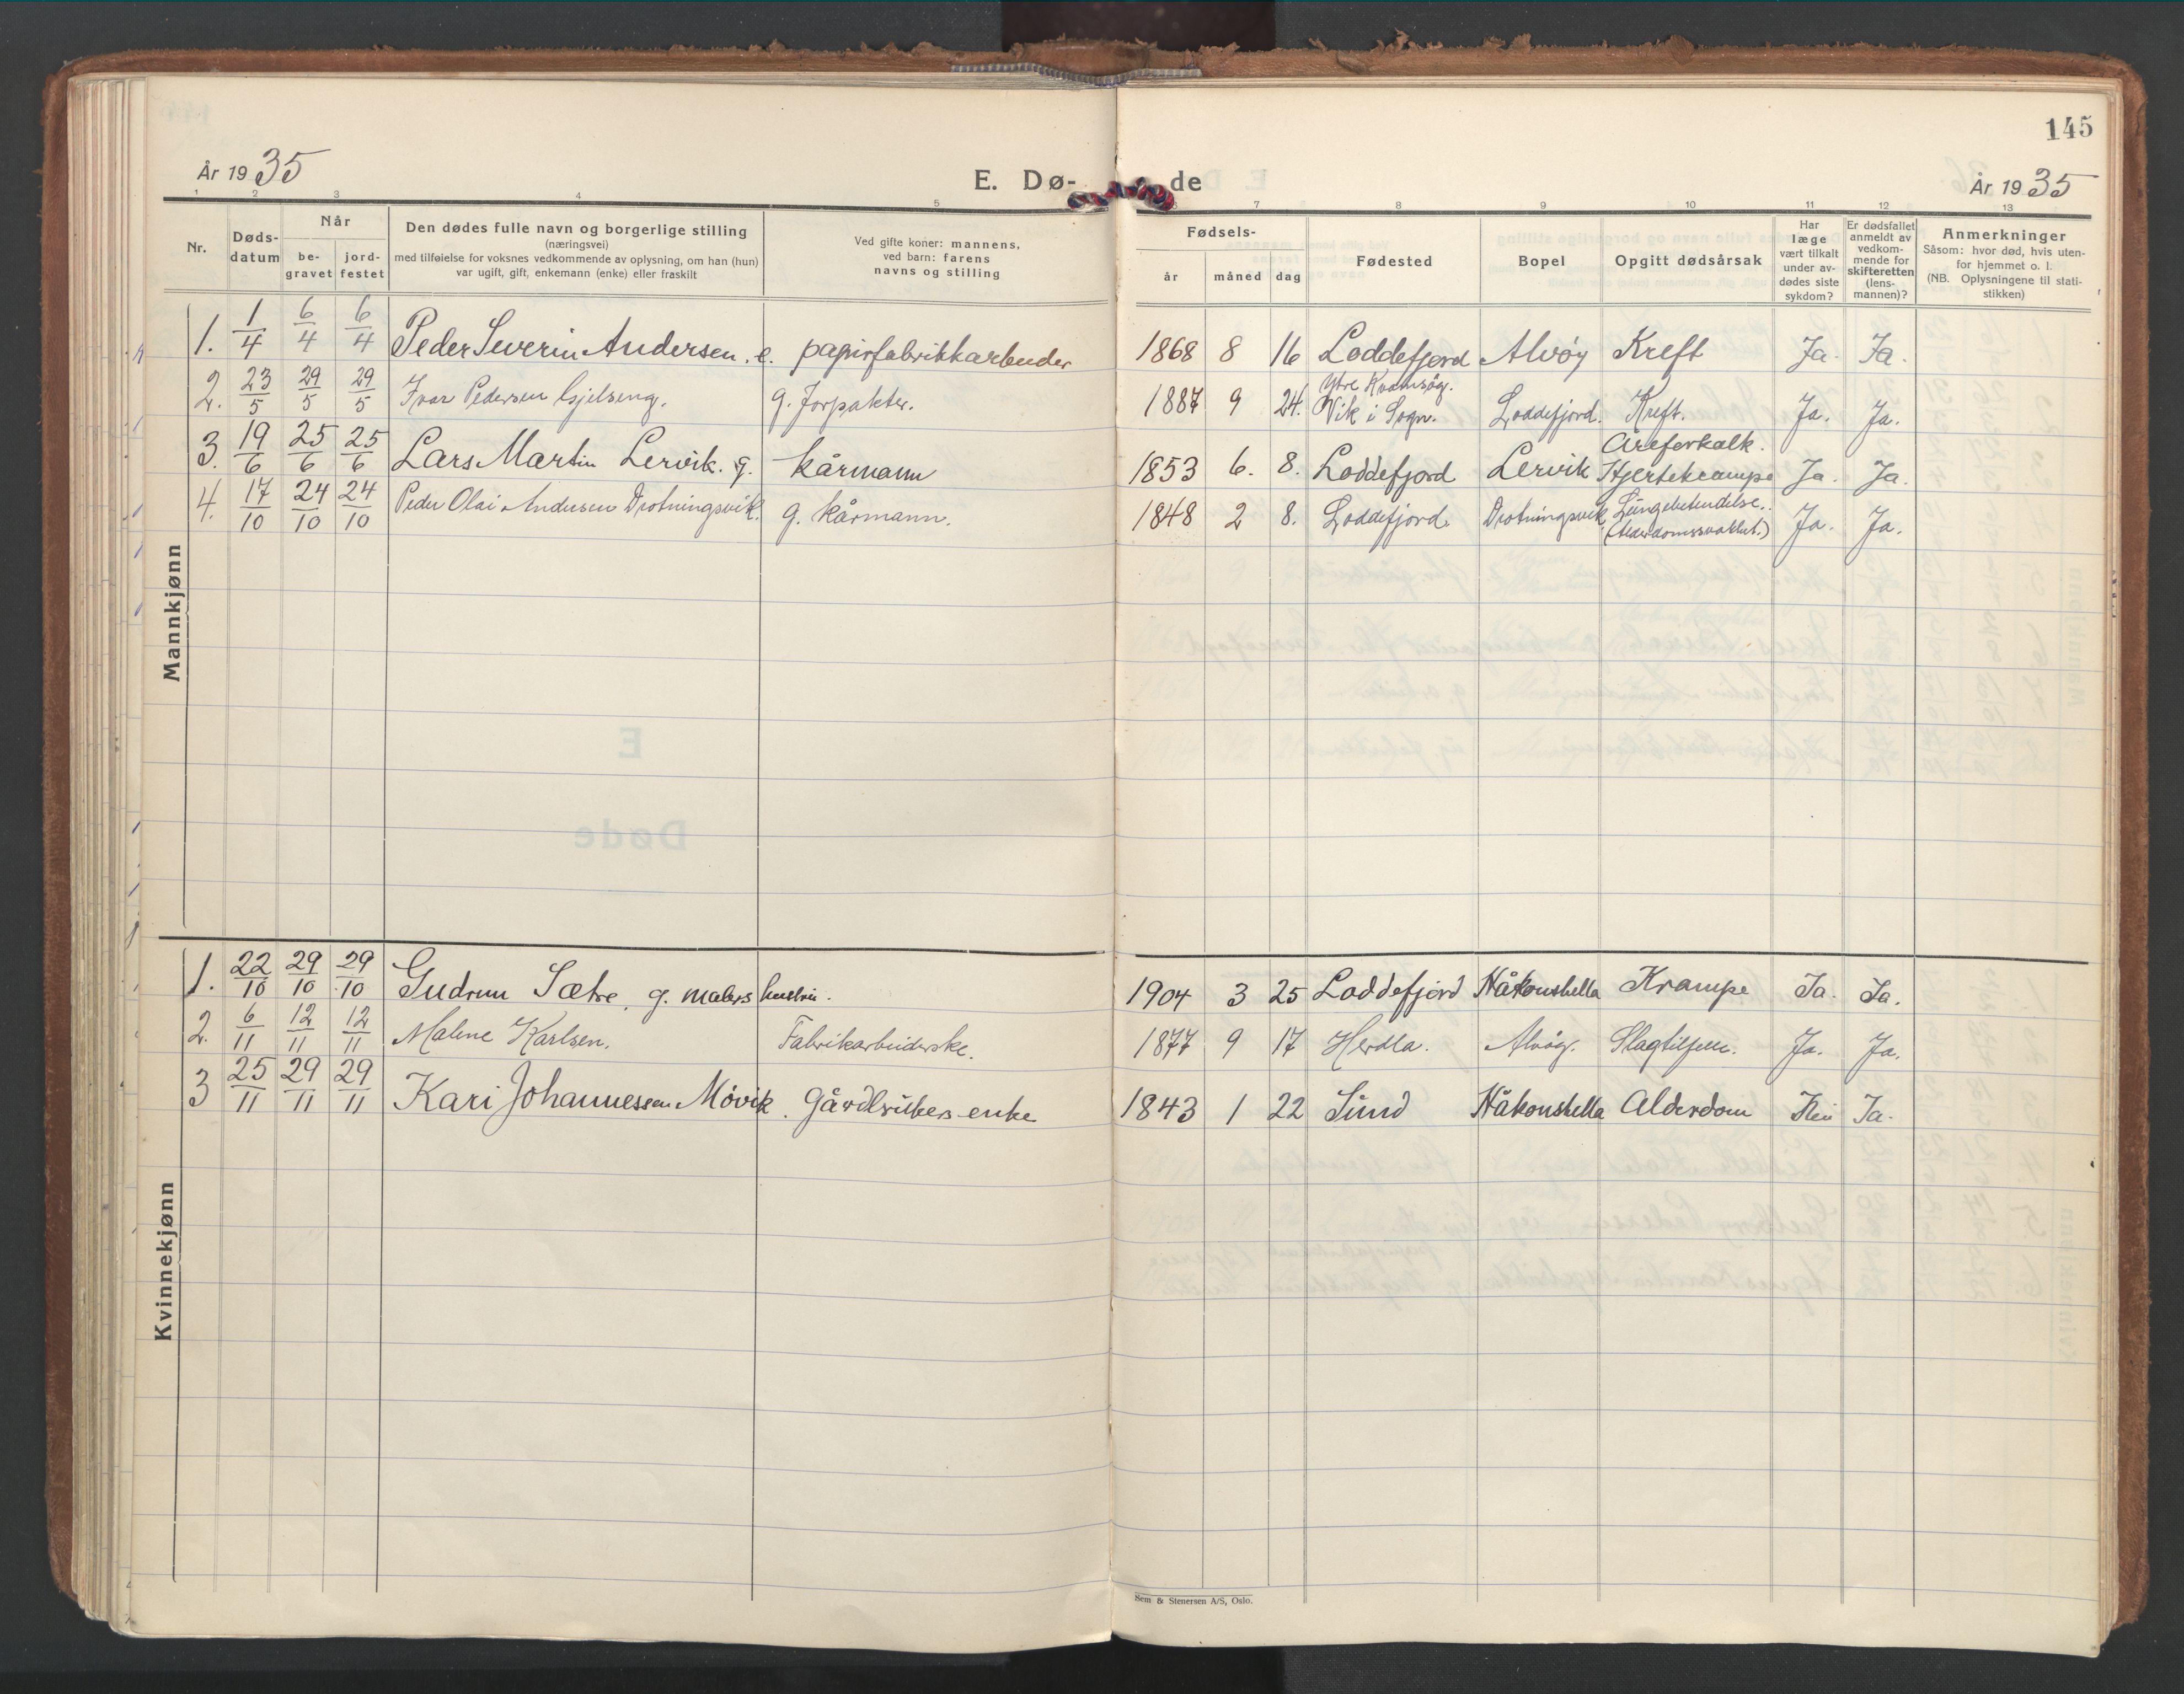 145
År 1935
E. Dø-
de
År 1935
1 2 3 4 5 6 7 8 9 10 11 12 13
Nr.
Døds-
datum
Når
be-
gravet
jord-
festet
Den dødes fulle navn og borgerlige stilling
(næringsvei)
med tilføielse for voksnes vedkommende av oplysning, om han (hun)
var ugift, gift, enkemann (enke) eller fraskilt
Ved gifte koner: mannens,
ved barn: farens
navns og stilling
Fødsels-
år måned dag
Fødested
Bopel
Opgitt dødsårsak
Har
læge
vært tilkalt
under av-
dødes siste
sykdom?
Er dødsfallet
anmeldt av
vedkom-
mende for
skifteretten
(lens-
mannen)?
Anmerkninger
Såsom: hvor død, hvis uten-
for hjemmet o. l.
(NB. Oplysningene til stati-
stikken)
Mannkjønn
1. 1/4 6/4 6/4 Peder Severin Andersen. e. papirfabrikkarbeider 1868 8 16 Loddefjord Alvøy Kreft Ja. Ja.
2. 23/5 29/5 29/5 Ivar Pedersen Gjelseng. g. Forpakter. 1887 9 24. Ytre Kvamsøy. Vik i Sogn. Loddefjord. Kreft. Ja. Ja.
3. 19/6 25/6 25/6 Lars Martin Lervik. g. kårmann 1853 6. 8. Loddefjord Lervik Åreforkalk. Hjertekrampe Ja. Ja.
4. 17/10 24/10 24/10 Peder Olai Andersen Drotningsvik. g. kårmann. 1848 2 8. Loddefjord. Drotningsvik Lungebetendelse. (Alderdomssvakhet.) Ja. Ja.
Kvinnekjønn
1. 22/10 29/10 29/10 Gudrun Sætre, g. malers hustru. 1904 3 25 Loddefjord Håkonshella Krampe Ja. Ja.
2. 6/11 12/11 12/11 Malene Karlsen. Fabrikarbeiderske. 1877 9 17 Herdla. Alvøy. Slagtilfelle. Ja. Ja.
3 25/11 29/11 29/11 Kari Johannessen Møvik. Gårdbrukers enke 1843 1 22 Sund Håkonshella Alderdom Nei Ja.
Sem & Stenersen A/S, Oslo.